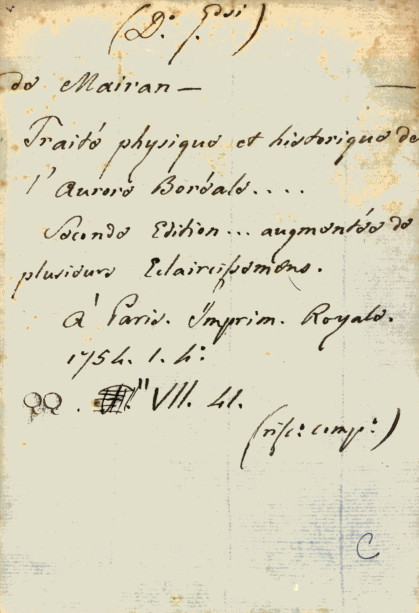 (D.º Gssi)
de Mairan —
Traité physique et historique de
l'Aurore Boréale....
Seconde Edition... augmentée de
plusieurs Eclaircissemens.
A Paris. Imprim. Royale.
1754. 1. 4.º
QQ. VII. 41.
(risc.º comp.º)
C